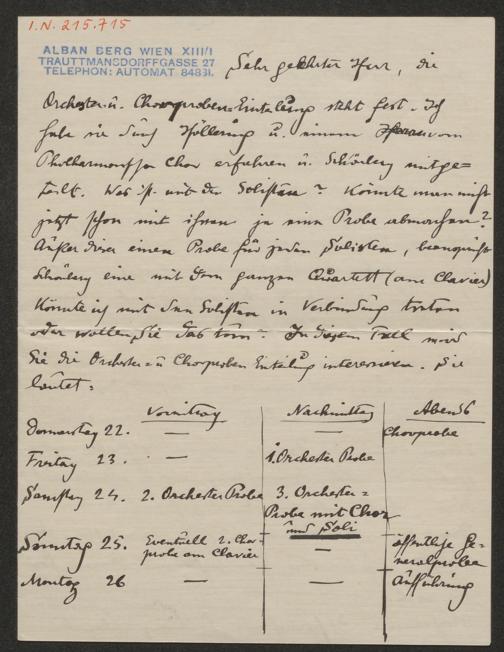 I.N. 215.715
ALBAN BERG WIEN XIII/1
TRAUTTMANSDORFFGASSE 27
TELEPHON: AUTOMAT 84831.
Sehr geehrter Herr, die
Orchester u. Chorproben-Einteilung steht fest. Ich
habe sie durch Höllering u. einem Herrn vom
Philharmonischen Chor erfahren u. Schönberg mitge=
teilt. Was ist mit den Solisten? Könnte man nicht
jetzt schon mit ihnen je eine Probe abmachen?
Außer dieser einen Probe für jeden Solisten, beansprucht
Schönberg eine mit dem ganzen Quartett (am Clavier)
Könnte ich mit den Solisten in Verbindung treten
oder wollen Sie das tun? In diesem Fall wird
Sie die Orchester= u Chorproben Einteilung interessieren. Sie
lautet:
Vormittag Nachmittag Abends
Donnerstag 22. — Chorprobe
Freitag 23. — 1. Orchester Probe
Samstag 24. 2. Orchester Probe 3. Orchester=
Probe mit Chor
und Soli
Sonntag 25. Eventuell 2. Chor= — öffentliche Ge=
probe am Clavier neralprobe
Montag 26 — — Aufführung